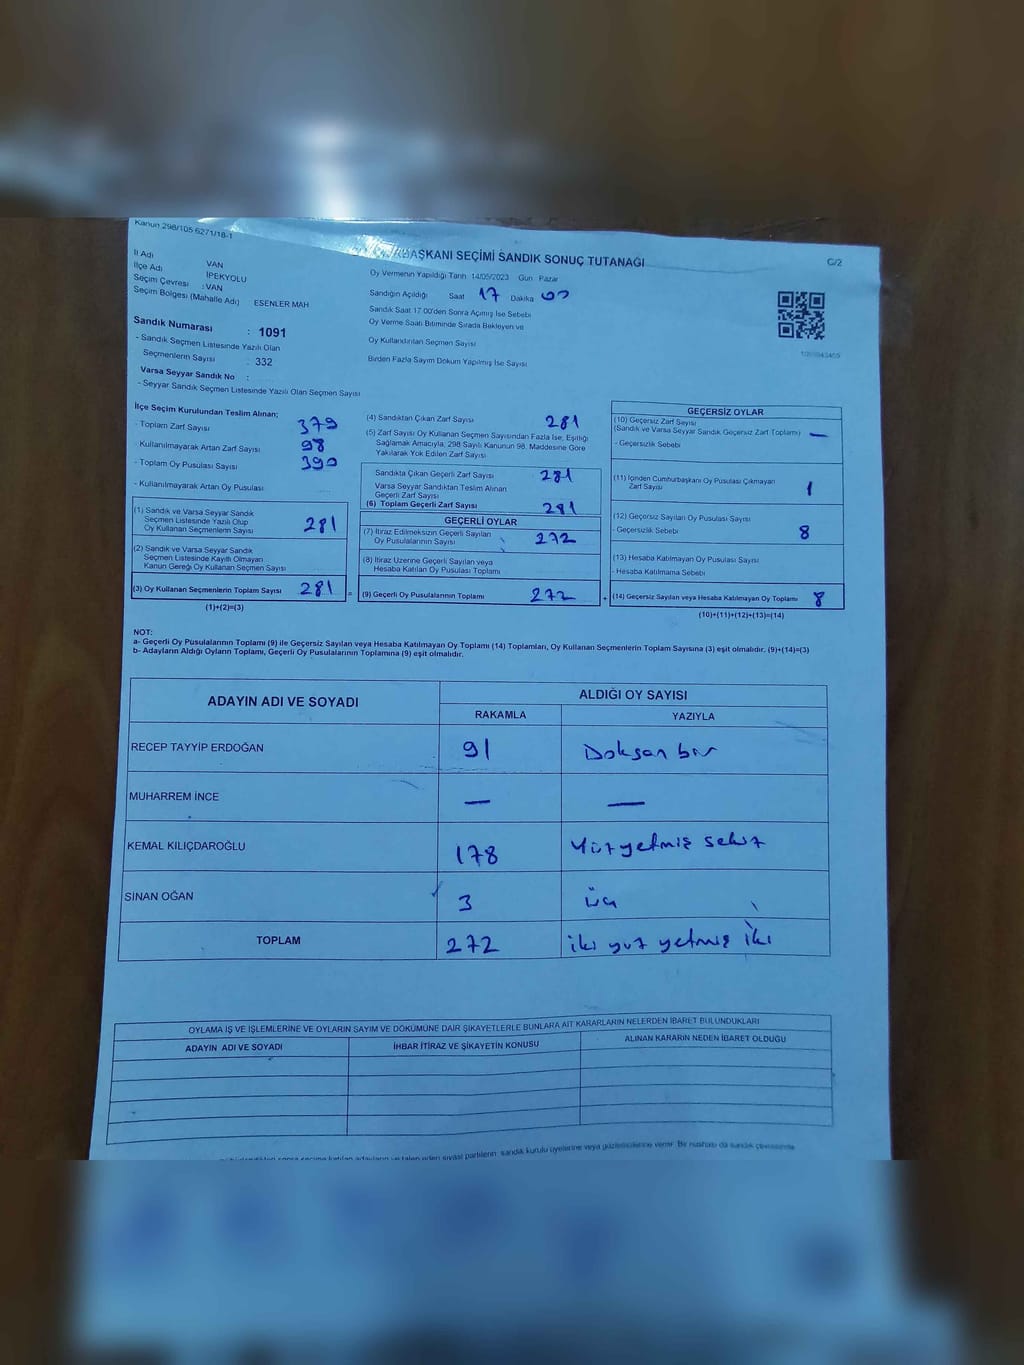 Kanun 298/105 6271/18-1
BAŞKANI SEÇİMİ SANDIK SONUÇ TUTANAĞI
C/2
İl Adı VAN
İlçe Adı İPEKYOLU
Seçim Çevresi : VAN
Seçim Bölgesi (Mahalle Adı) ESENLER MAH
Oy Vermenin Yapıldığı Tarih 14/05/2023 Gün Pazar
Sandığın Açıldığı Saat 17 Dakika 00
Sandık Saat 17:00'den Sonra Açılmış İse Sebebi
Oy Verme Saati Bitiminde Sırada Bekleyen ve
Oy Kullandırılan Seçmen Sayısı
Birden Fazla Sayım Döküm Yapılmış İse Sayısı
Sandık Numarası : 1091
- Sandık Seçmen Listesinde Yazılı Olan
Seçmenlerin Sayısı : 332
Varsa Seyyar Sandık No :
- Seyyar Sandık Seçmen Listesinde Yazılı Olan Seçmen Sayısı
İlçe Seçim Kurulundan Teslim Alınan;
- Toplam Zarf Sayısı 379
- Kullanılmayarak Artan Zarf Sayısı 98
- Toplam Oy Pusulası Sayısı 390
- Kullanılmayarak Artan Oy Pusulası
(1) Sandık ve Varsa Seyyar Sandık
Seçmen Listesinde Yazılı Olup
Oy Kullanan Seçmenlerin Sayısı 281
(2) Sandık ve Varsa Seyyar Sandık
Seçmen Listesinde Kayıtlı Olmayan
Kanun Gereği Oy Kullanan Seçmen Sayısı
(3) Oy Kullanan Seçmenlerin Toplam Sayısı 281 =
(1)+(2)=(3)
(4) Sandıktan Çıkan Zarf Sayısı 281
(5) Zarf Sayısı Oy Kullanan Seçmen Sayısından Fazla İse, Eşitliği
Sağlamak Amacıyla, 298 Sayılı Kanunun 98. Maddesine Göre
Yakılarak Yok Edilen Zarf Sayısı
Sandıkta Çıkan Geçerli Zarf Sayısı 281
Varsa Seyyar Sandıktan Teslim Alınan
Geçerli Zarf Sayısı
(6) Toplam Geçerli Zarf Sayısı 281
GEÇERLİ OYLAR
(7) İtiraz Edilmeksizin Geçerli Sayılan
Oy Pusulalarının Sayısı 272
(8) İtiraz Üzerine Geçerli Sayılan veya
Hesaba Katılan Oy Pusulası Toplamı
(9) Geçerli Oy Pusulalarının Toplamı 272 +
GEÇERSİZ OYLAR
(10) Geçersiz Zarf Sayısı
(Sandık ve Varsa Seyyar Sandık Geçersiz Zarf Toplamı) —
- Geçersizlik Sebebi
(11) İçinden Cumhurbaşkanı Oy Pusulası Çıkmayan
Zarf Sayısı 1
(12) Geçersiz Sayılan Oy Pusulası Sayısı
- Geçersizlik Sebebi 8
(13) Hesaba Katılmayan Oy Pusulası Sayısı
- Hesaba Katılmama Sebebi
(14) Geçersiz Sayılan veya Hesaba Katılmayan Oy Toplamı 8
(10)+(11)+(12)+(13)=(14)
NOT:
a- Geçerli Oy Pusulalarının Toplamı (9) ile Geçersiz Sayılan veya Hesaba Katılmayan Oy Toplamı (14) Toplamları, Oy Kullanan Seçmenlerin Toplam Sayısına (3) eşit olmalıdır. (9)+(14)=(3)
b- Adayların Aldığı Oyların Toplamı, Geçerli Oy Pusulalarının Toplamına (9) eşit olmalıdır.
ADAYIN ADI VE SOYADI ALDIĞI OY SAYISI
RAKAMLA YAZIYLA
RECEP TAYYİP ERDOĞAN 91 Doksan bir
MUHARREM İNCE — —
KEMAL KILIÇDAROĞLU 178 Yüz yetmiş sekiz
SİNAN OĞAN 3 üç
TOPLAM 272 iki yüz yetmiş iki
OYLAMA İŞ VE İŞLEMLERİNE VE OYLARIN SAYIM VE DÖKÜMÜNE DAİR ŞİKAYETLERLE BUNLARA AİT KARARLARIN NELERDEN İBARET BULUNDUKLARI
ADAYIN ADI VE SOYADI İHBAR İTİRAZ VE ŞİKAYETİN KONUSU ALINAN KARARIN NEDEN İBARET OLDUĞU
sandık kurulu üyelerine veya gözlemcilerine verilir. Bir nüshası da sandık çevresinde